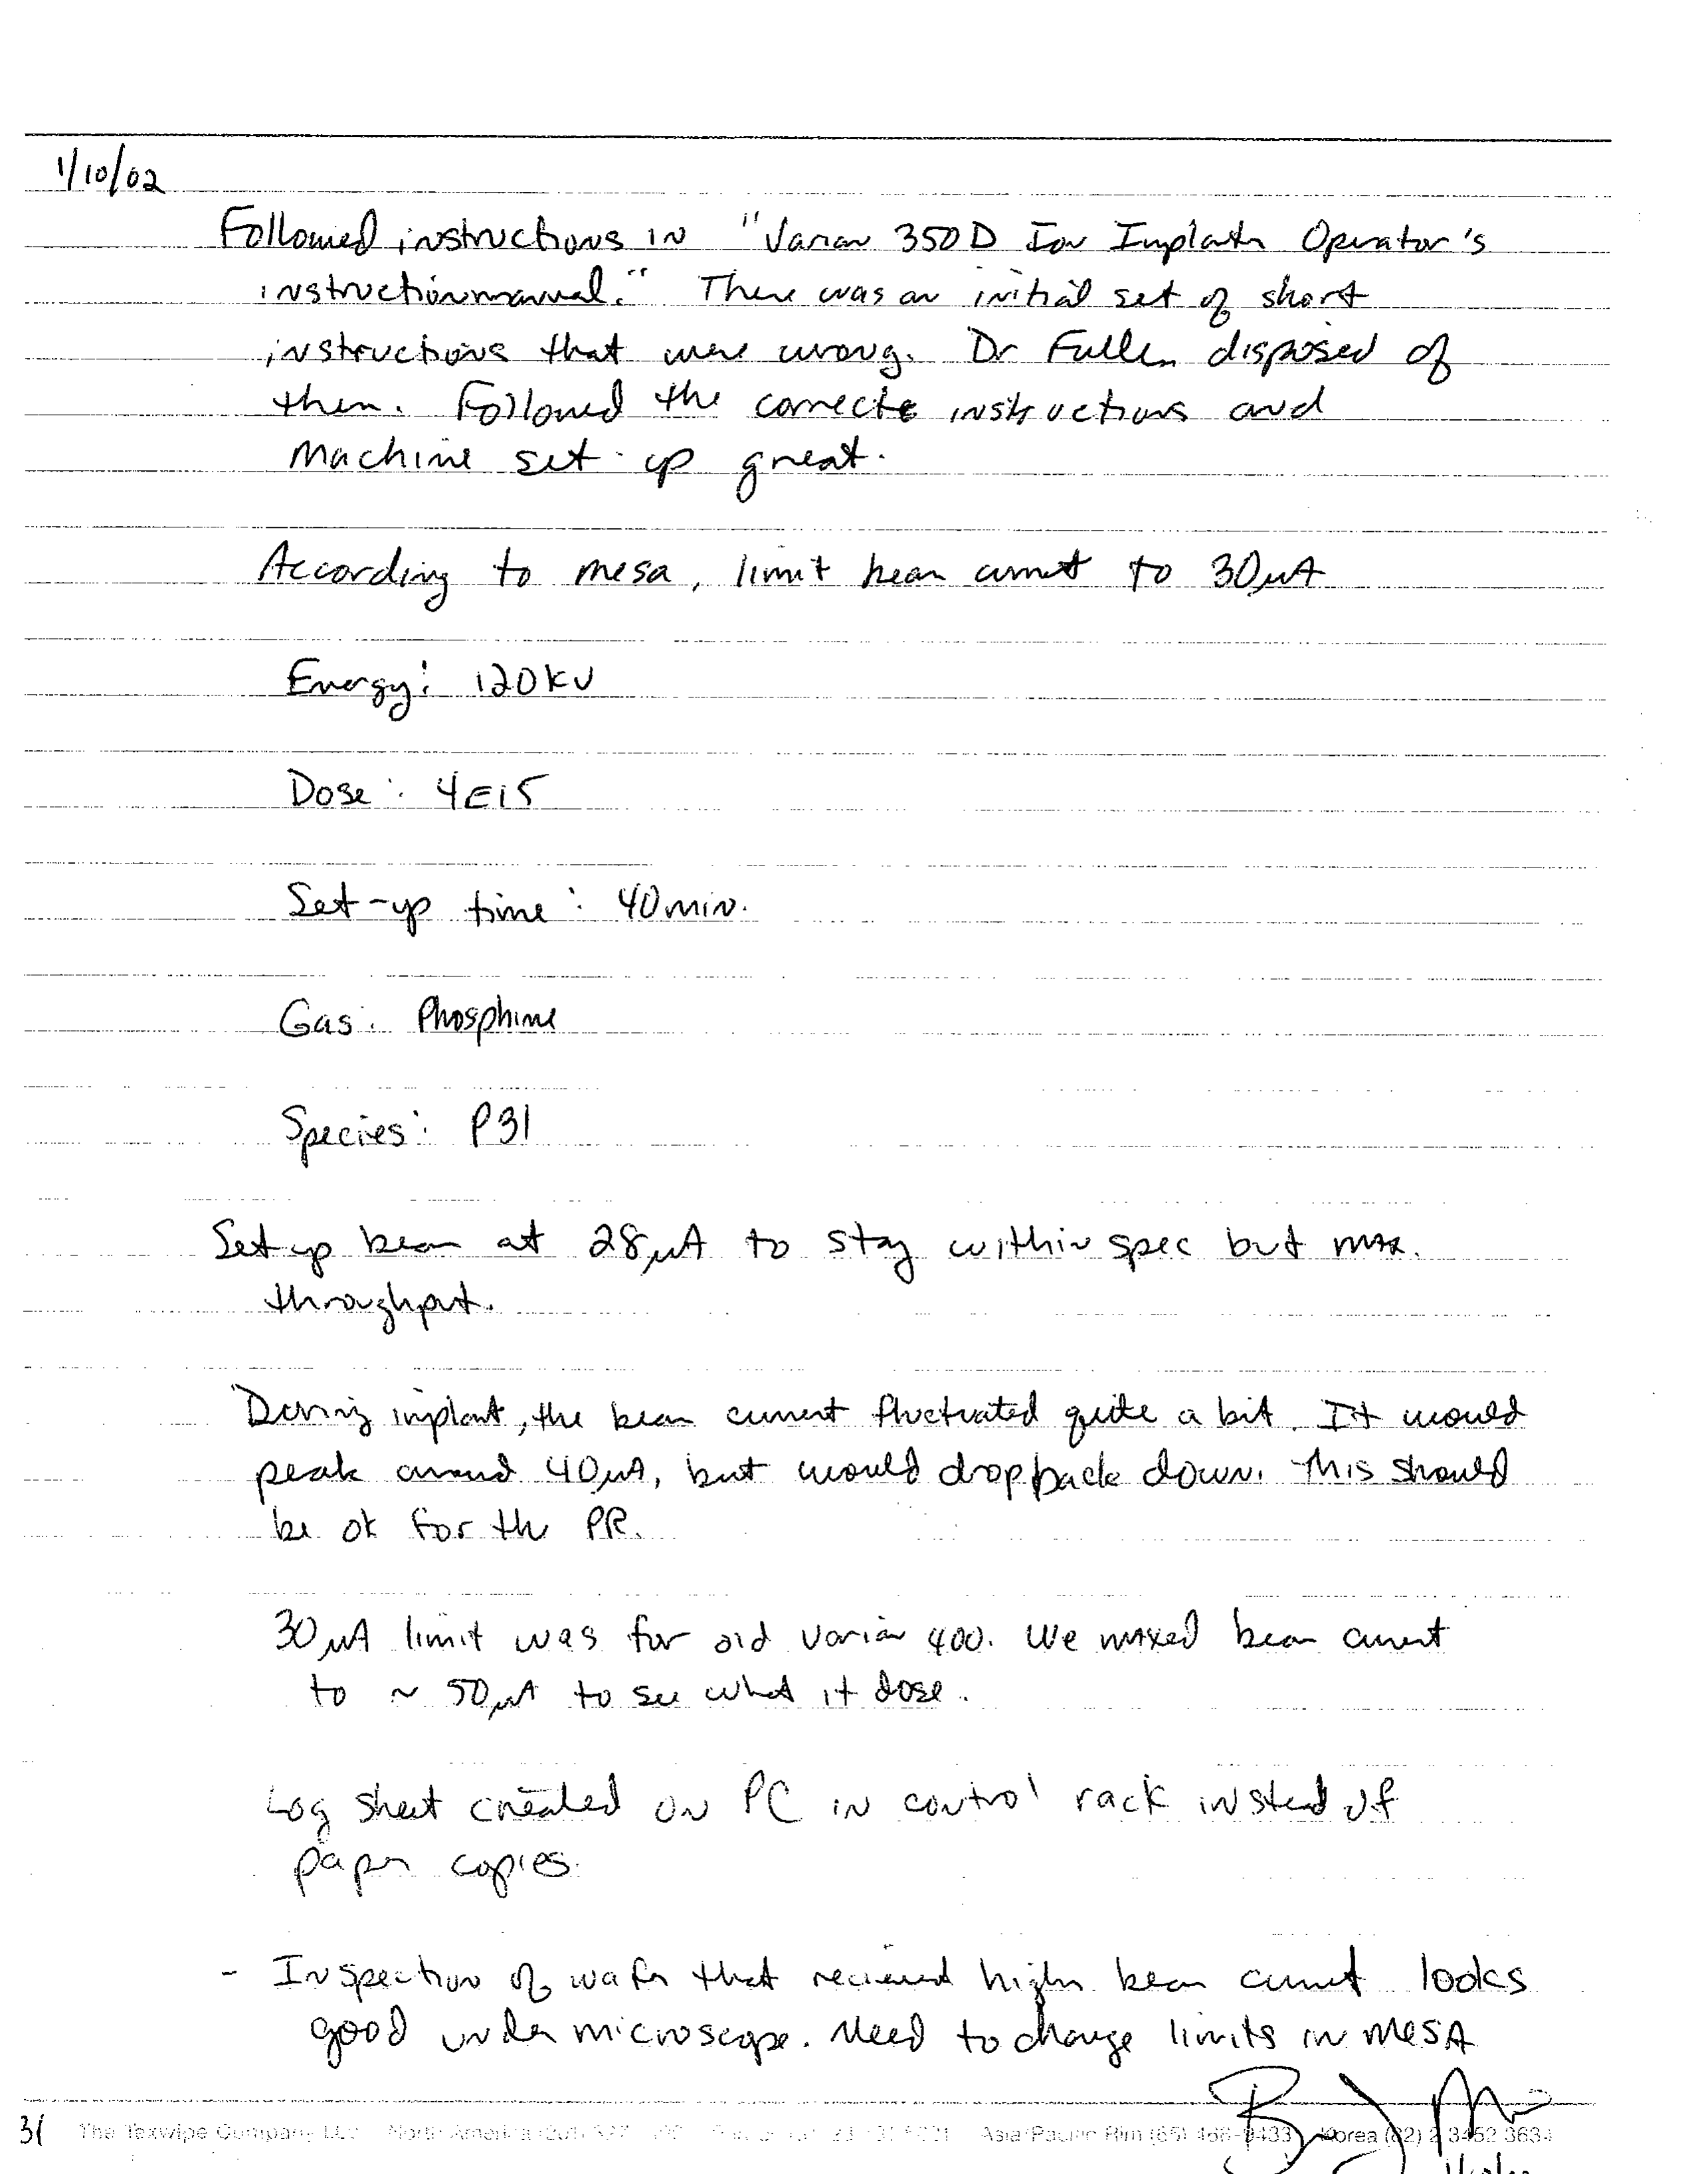 1/10/02
Followed instructions in "Varian 350D Ion Implant Operator's
instruction manual." There was an initial set of short
instructions that were wrong. Dr Fuller disposed of
them. Followed the correct instructions and
Machine set-up great.
According to mesa, limit beam current to 30µA
Energy: 120kV
Dose: 4E15
Set-up time: 40min.
Gas: Phosphine
Species: P31
Set up beam at 28µA to stay within spec but max.
throughput.
During implant, the beam current fluctuated quite a bit. It would
peak around 40µA, but would drop back down. This should
be ok for the PR.
30µA limit was for old varian 400. We maxed beam current
to ~ 50µA to see what it dose.
Log sheet created on PC in control rack instead of
paper copies.
- Inspection of wafer that recieved high beam current looks
good under microscope. Need to change limits in MESA
31 The Texwipe Company LLC North America Asia/Pacific Rim (65) 468-9433 Korea (82) 2 3452 3634